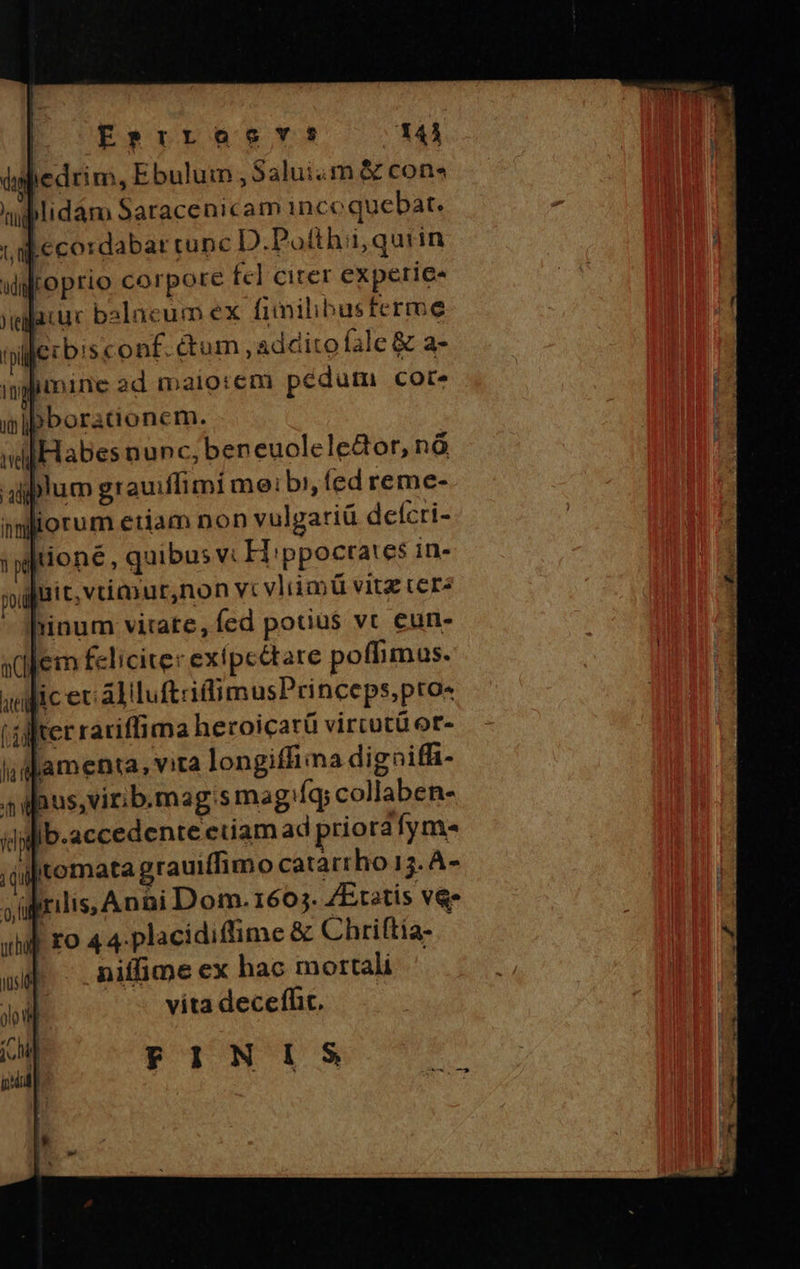 EPILOGVS 143
edrim, Ebulum, Saluiam & con-
lidam Saracenicam incoquebat.
ecordabar tunc D. Posthii, qui in
roprio corpore fel citer experie-
atur balneum ex similibus ferme
erbis conf. ctum, addito sale & a-
mine ad maiorem pedum cor-
oborationem.
Habes nunc, beneuole lector, nō
lum grauissimi morbi, sed reme-
iorum etiam non vulgariū descri-
tioné, quibus vt Hippocrates in-
uit, vtimur, non vt vltimū vitæ ter-
inum vitate, sed potius vt eun-
em feliciter exspectare possimus.
ic et illustrissimus Princeps, pro-
ter rarissima heroicarū virtutū or-
amenta, vita longissima digniss-
us, virib. magis magisq; collaben-
ib. accedente etiam ad priora sym-
tomata grauissimo catarrho 13. A-
rilis, Anni Dom. 1603. Ætatis ve-
ro 44. placidissime & Christia-
nissime ex hac mortali
vita decessit.
FINIS